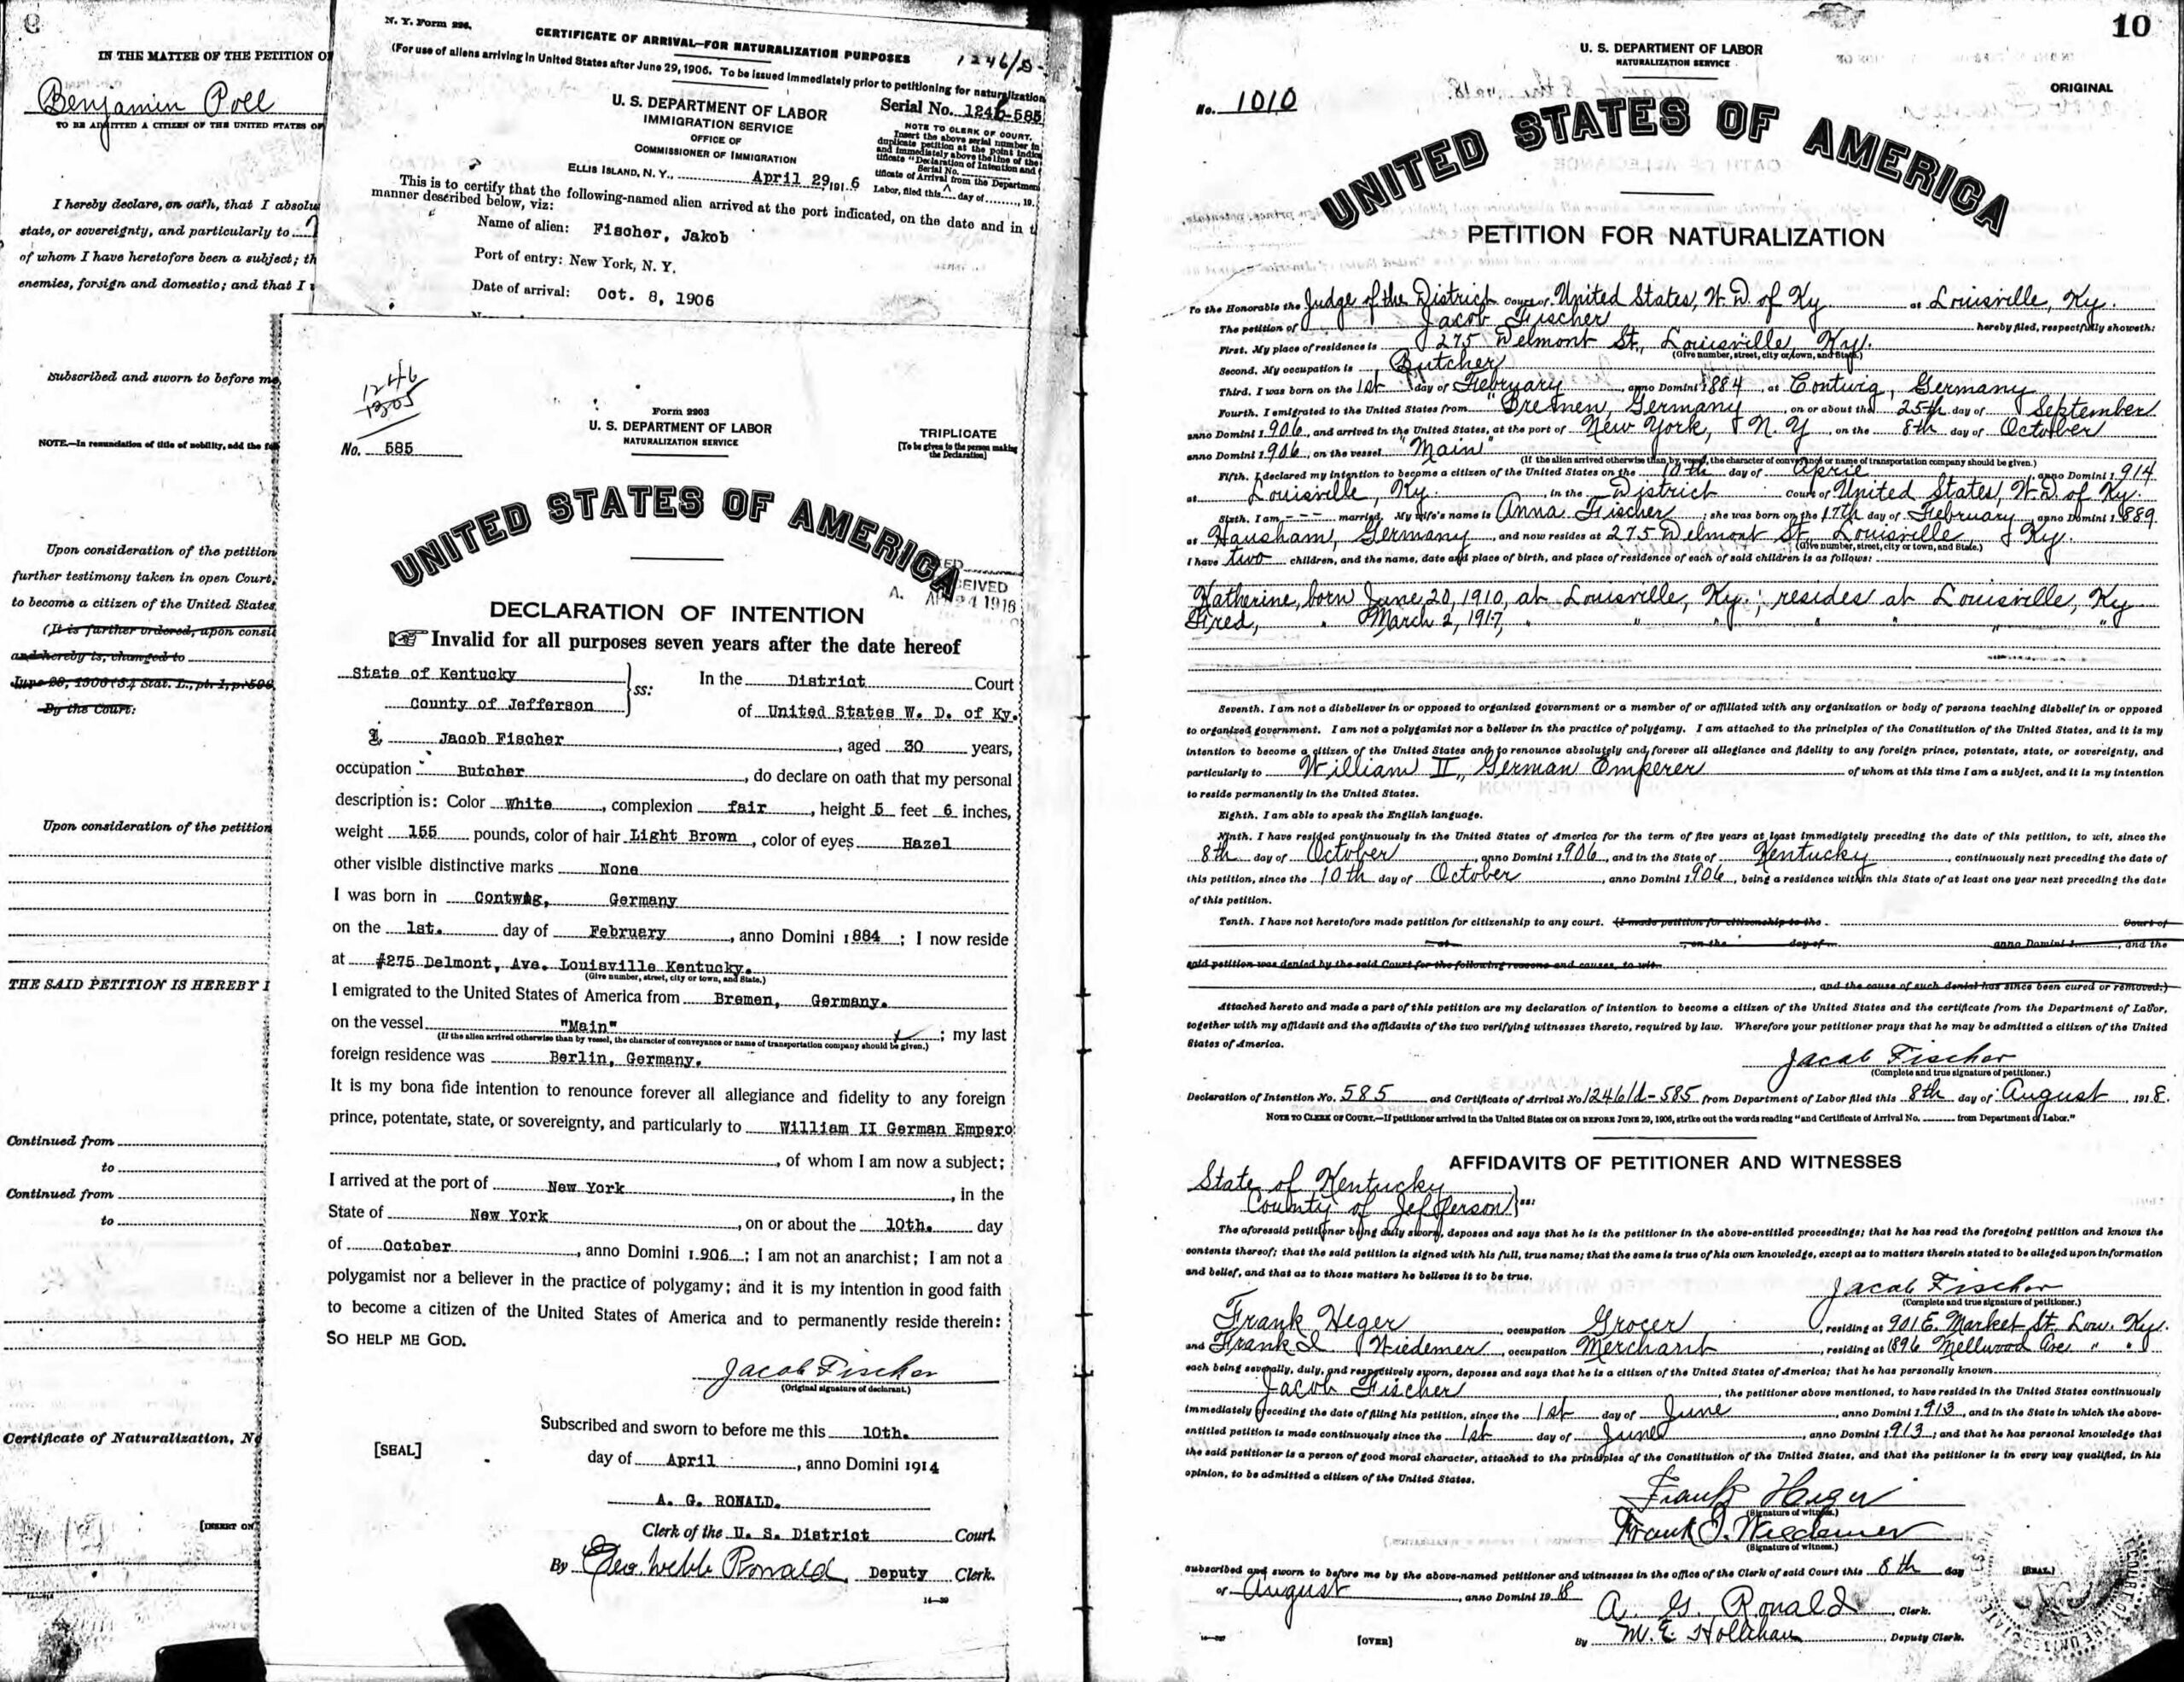 9
IN THE MATTER OF THE PETITION O
Benjamin Poll
TO BE ADMITTED A CITIZEN OF THE UNITED STATES OF
I hereby declare, on oath, that I absolu
state, or sovereignty, and particularly to
of whom I have heretofore been a subject; th
enemies, foreign and domestic; and that I
Subscribed and sworn to before me,
NOTE.—In renunciation of title of nobility, add the
Upon consideration of the petition
further testimony taken in open Court,
to become a citizen of the United States
(It is further ordered, upon consi
and hereby is, changed to
June 29, 1906 (34 Stat. L., pt. 1, p. 596
By the Court:
Upon consideration of the petition
THE SAID PETITION IS HEREBY
Continued from
to
Continued from
to
Certificate of Naturalization, N
[INSERT ON
N. Y. Form 226.
CERTIFICATE OF ARRIVAL—FOR NATURALIZATION PURPOSES
1246/D-
(For use of aliens arriving in United States after June 29, 1906. To be issued immediately prior to petitioning for naturalization
U. S. DEPARTMENT OF LABOR
IMMIGRATION SERVICE
OFFICE OF
COMMISSIONER OF IMMIGRATION
Serial No. 1246-585
NOTE TO CLERK OF COURT.
Insert the above serial number in
duplicate petition at the point indica
and immediately above the line of the
tificate "Declaration of Intention and
Serial No.
tificate of Arrival from the Departmen
Labor, filed this day of , 19 .
ELLIS ISLAND, N. Y., April 29, 1916
This is to certify that the following-named alien arrived at the port indicated, on the date and in t
manner described below, viz:
Name of alien: Fischer, Jakob
Port of entry: New York, N. Y.
Date of arrival: Oct. 8, 1906
1246
1305
Form 2203
U. S. DEPARTMENT OF LABOR
NATURALIZATION SERVICE
No. 585
TRIPLICATE
[To be given to the person making
the Declaration]
UNITED STATES OF AMERICA
CEIVED
24 1916
DECLARATION OF INTENTION
☞ Invalid for all purposes seven years after the date hereof
State of Kentucky
County of Jefferson
ss:
In the District Court
of United States W. D. of Ky.
I, Jacob Fischer, aged 30 years,
occupation Butcher, do declare on oath that my personal
description is: Color White, complexion fair, height 5 feet 6 inches,
weight 155 pounds, color of hair Light Brown, color of eyes Hazel
other visible distinctive marks None
I was born in Contwig, Germany
on the 1st. day of February, anno Domini 1884; I now reside
at #275 Delmont, Ave. Louisville Kentucky.
(Give number, street, city or town, and State.)
I emigrated to the United States of America from Bremen, Germany.
on the vessel "Main"; my last
(If the alien arrived otherwise than by vessel, the character of conveyance or name of transportation company should be given.)
foreign residence was Berlin, Germany.
It is my bona fide intention to renounce forever all allegiance and fidelity to any foreign
prince, potentate, state, or sovereignty, and particularly to William II German Empero
, of whom I am now a subject;
I arrived at the port of New York, in the
State of New York, on or about the 10th. day
of October, anno Domini 1906; I am not an anarchist; I am not a
polygamist nor a believer in the practice of polygamy; and it is my intention in good faith
to become a citizen of the United States of America and to permanently reside therein:
SO HELP ME GOD.
Jacob Fischer
(Original signature of declarant.)
Subscribed and sworn to before me this 10th.
[SEAL]
day of April, anno Domini 1914
A. G. RONALD.
Clerk of the U. S. District Court.
By Geo. Webb Ronald, Deputy Clerk.
14—30
10
U. S. DEPARTMENT OF LABOR
NATURALIZATION SERVICE
ORIGINAL
No. 1010
UNITED STATES OF AMERICA
PETITION FOR NATURALIZATION
To the Honorable the Judge of the District Court of United States, W. D. of Ky at Louisville, Ky.
The petition of Jacob Fischer hereby filed, respectfully showeth:
First. My place of residence is 275 Delmont St., Louisville, Ky.
(Give number, street, city or town, and State.)
Second. My occupation is Butcher
Third. I was born on the 1st day of February, anno Domini 1884, at Contwig, Germany
Fourth. I emigrated to the United States from Bremen, Germany, on or about the 25th day of September
anno Domini 1906, and arrived in the United States, at the port of New York, N. Y., on the 8th day of October
anno Domini 1906, on the vessel "Main"
(If the alien arrived otherwise than by vessel, the character of conveyance or name of transportation company should be given.)
Fifth. I declared my intention to become a citizen of the United States on the 10th day of April, anno Domini 1914
at Louisville, Ky. in the District Court of United States, W. D. of Ky.
Sixth. I am --- married. My wife's name is Anna Fischer; she was born on the 17th day of February, anno Domini 1889
at Hausham, Germany, and now resides at 275 Delmont St., Louisville, Ky.
(Give number, street, city or town, and State.)
I have two children, and the name, date and place of birth, and place of residence of each of said children is as follows:
Katherine, born June 20, 1910, at Louisville, Ky.; resides at Louisville, Ky
Fred, " March 2, 1917, " " " " " "
Seventh. I am not a disbeliever in or opposed to organized government or a member of or affiliated with any organization or body of persons teaching disbelief in or opposed
to organized government. I am not a polygamist nor a believer in the practice of polygamy. I am attached to the principles of the Constitution of the United States, and it is my
intention to become a citizen of the United States and to renounce absolutely and forever all allegiance and fidelity to any foreign prince, potentate, state, or sovereignty, and
particularly to William II, German Emperer of whom at this time I am a subject, and it is my intention
to reside permanently in the United States.
Eighth. I am able to speak the English language.
Ninth. I have resided continuously in the United States of America for the term of five years at least immediately preceding the date of this petition, to wit, since the
8th day of October, anno Domini 1906, and in the State of Kentucky, continuously next preceding the date of
this petition, since the 10th day of October, anno Domini 1906, being a residence within this State of at least one year next preceding the date
of this petition.
Tenth. I have not heretofore made petition for citizenship to any court. (I made petition for citizenship to the Court of
at , on the day of anno Domini 1 , and the
said petition was denied by the said Court for the following reasons and causes, to wit
, and the cause of such denial has since been cured or removed.)
Attached hereto and made a part of this petition are my declaration of intention to become a citizen of the United States and the certificate from the Department of Labor,
together with my affidavit and the affidavits of the two verifying witnesses thereto, required by law. Wherefore your petitioner prays that he may be admitted a citizen of the United
States of America.
Jacob Fischer
(Complete and true signature of petitioner.)
Declaration of Intention No. 585 and Certificate of Arrival No 1246/d-585 from Department of Labor filed this 8th day of August, 1918.
NOTE TO CLERK OF COURT.—If petitioner arrived in the United States ON OR BEFORE JUNE 29, 1906, strike out the words reading "and Certificate of Arrival No. from Department of Labor."
AFFIDAVITS OF PETITIONER AND WITNESSES
State of Kentucky
County of Jefferson
ss:
The aforesaid petitioner being duly sworn, deposes and says that he is the petitioner in the above-entitled proceedings; that he has read the foregoing petition and knows the
contents thereof; that the said petition is signed with his full, true name; that the same is true of his own knowledge, except as to matters therein stated to be alleged upon information
and belief, and that as to those matters he believes it to be true.
Jacob Fischer
(Complete and true signature of petitioner.)
Frank Heger, occupation Grocer, residing at 901 E. Market St. Lou. Ky.
and Frank I. Wiedemer, occupation Merchant, residing at 1896 Mellwood Ave. " "
each being severally, duly, and respectively sworn, deposes and says that he is a citizen of the United States of America; that he has personally known
Jacob Fischer, the petitioner above mentioned, to have resided in the United States continuously
immediately preceding the date of filing his petition, since the 1st day of June, anno Domini 1913, and in the State in which the above-
entitled petition is made continuously since the 1st day of June, anno Domini 1913; and that he has personal knowledge that
the said petitioner is a person of good moral character, attached to the principles of the Constitution of the United States, and that the petitioner is in every way qualified, in his
opinion, to be admitted a citizen of the United States.
Frank Heger
(Signature of witness.)
Frank I. Wiedemer
(Signature of witness.)
Subscribed and sworn to before me by the above-named petitioner and witnesses in the office of the Clerk of said Court this 8th day
of August, anno Domini 1918
[SEAL.]
A. G. Ronald, Clerk.
[OVER]
By M. E. Hollihan, Deputy Clerk.